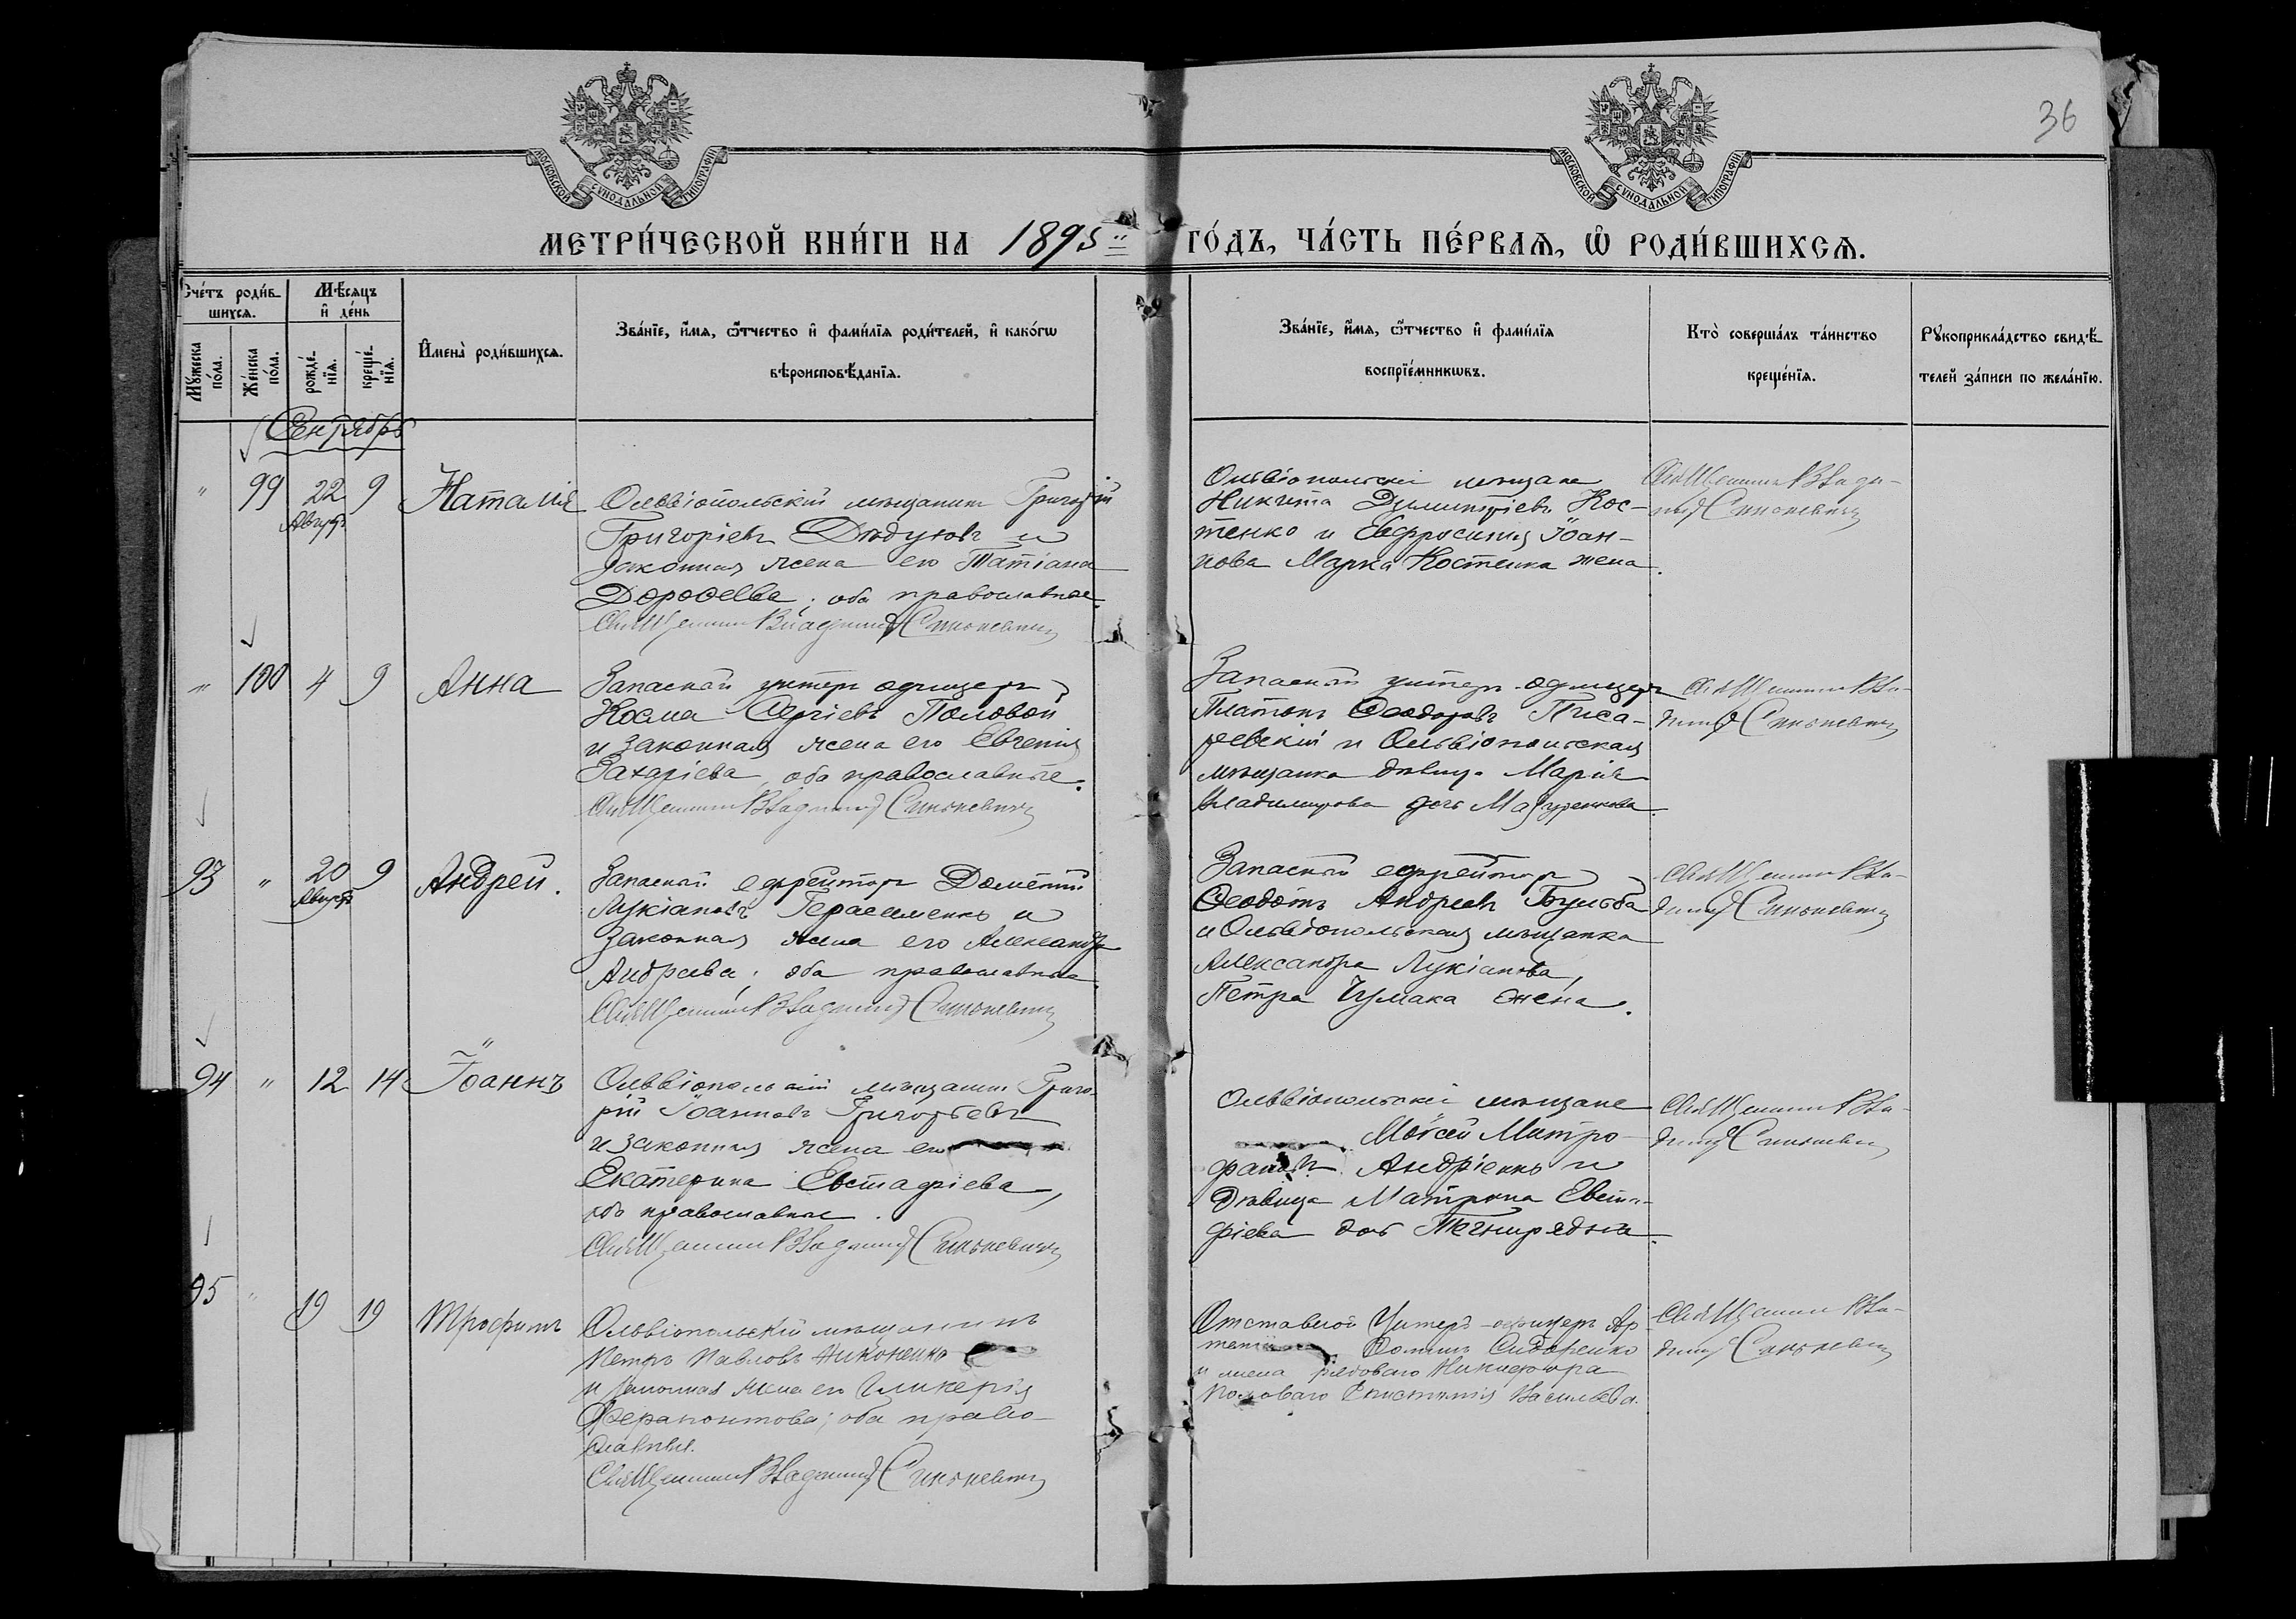 36
МОСКОВСКОЙ СУНОДАЛЬНОЙ ТИПОГРАФІИ
МОСКОВСКОЙ СУНОДАЛЬНОЙ ТИПОГРАФІИ
МЕТРИ́ЧЕСКОЙ КНИ́ГИ НА 1895 ГО́ДЪ, ЧА́СТЬ ПЕ́РВАѦ, Ѿ РОДИ́ВШИХСѦ.
Счéтъ роди́в-
шихсѧ.
Мѣ́сѧцъ
и҆ дéнь
Мꙋ́жеска
по́ла.
Же́нска
по́ла.
рождé-
нїѧ.
крещé-
нїѧ.
И҆мена̀ роди́вшихсѧ.
Зва́нїе, и҆́мѧ, ѻ҆́тчество и҆ фами́лїѧ роди́телей, и҆ како́гѡ
вѣроисповѣ́данїѧ.
Зва́нїе, и҆́мѧ, ѻ҆́тчество и҆ фами́лїѧ
воспрїе́мникѡвъ.
Кто̀ соверша́лъ та́инство
креще́нїѧ.
Рꙋкоприкла́дство свидѣ́-
телей за́писи по жела́нїю.
Сентябрь
" 99 22 9 Наталія
Август
Ольвіопольскій мѣщанинъ Григорій
Григоріевъ Дѣдуховъ и
законная жена его Татіана
Дороѳеева, оба православные.
Священникъ Владимир Синькевичъ
Ольвіопольскіе мѣщане
Никита Димитріевъ Кос-
тенко и Евфросинія Іоан-
нова Марка Костенка жена.
Священникъ Влади-
мир Синькевичъ
" 100 4 9 Анна
Запасной унтеръ офицеръ
Косма Сергіевъ Половой
и законная жена его Евгенія
Захаріева, оба православные.
Священникъ Владимир Синькевичъ
Запасной унтеръ-офицеръ
Платонъ Ѳеодоровъ Писа-
ревскій и Ольвіопольская
мѣщанка дѣвица Марія
Владимирова дочь Мазуренкова.
Священникъ Вла-
димир Синькевичъ
93 " 20 9 Андрей.
Август
Запасной ефрейторъ Дометій
Лукіановъ Герасименко и
законная жена его Александра
Андреева, оба православные
Священникъ Владимир Синькевичъ
Запасной ефрейторъ
Ѳеодотъ Андреевъ Бульба
и Ольвіопольская мѣщанка
Александра Лукіанова,
Петра Чумака жена.
Священникъ Вла-
димир Синькевичъ
94 " 12 14 Іоаннъ
Ольвіопольскій мѣщанинъ Григо-
рій Іоанновъ Григорьевъ
и законная жена его
Екатерина Евстафіева,
оба православные.
Священникъ Владимир Синькевичъ
Ольвіопольскіе мѣщане
Моѵсей Митро-
фановъ Андріенко и
дѣвица Матрона Евста-
фіева дочь
Священникъ Вла-
димир Синькевичъ
95 " 19 19 Трофимъ
Ольвіопольскій мѣщанинъ
Петръ Павловъ Никоненко
и законная жена его Гликерія
Ферапонтова; оба право-
славные.
Священникъ Владимир Синькевичъ
Отставной Унтеръ-офицеръ Ар-
Ѳоминъ Сидоренко
и жена рядоваго Никифора
Половаго Епистимія Васильева.
Священникъ Вла-
димир Синькевичъ